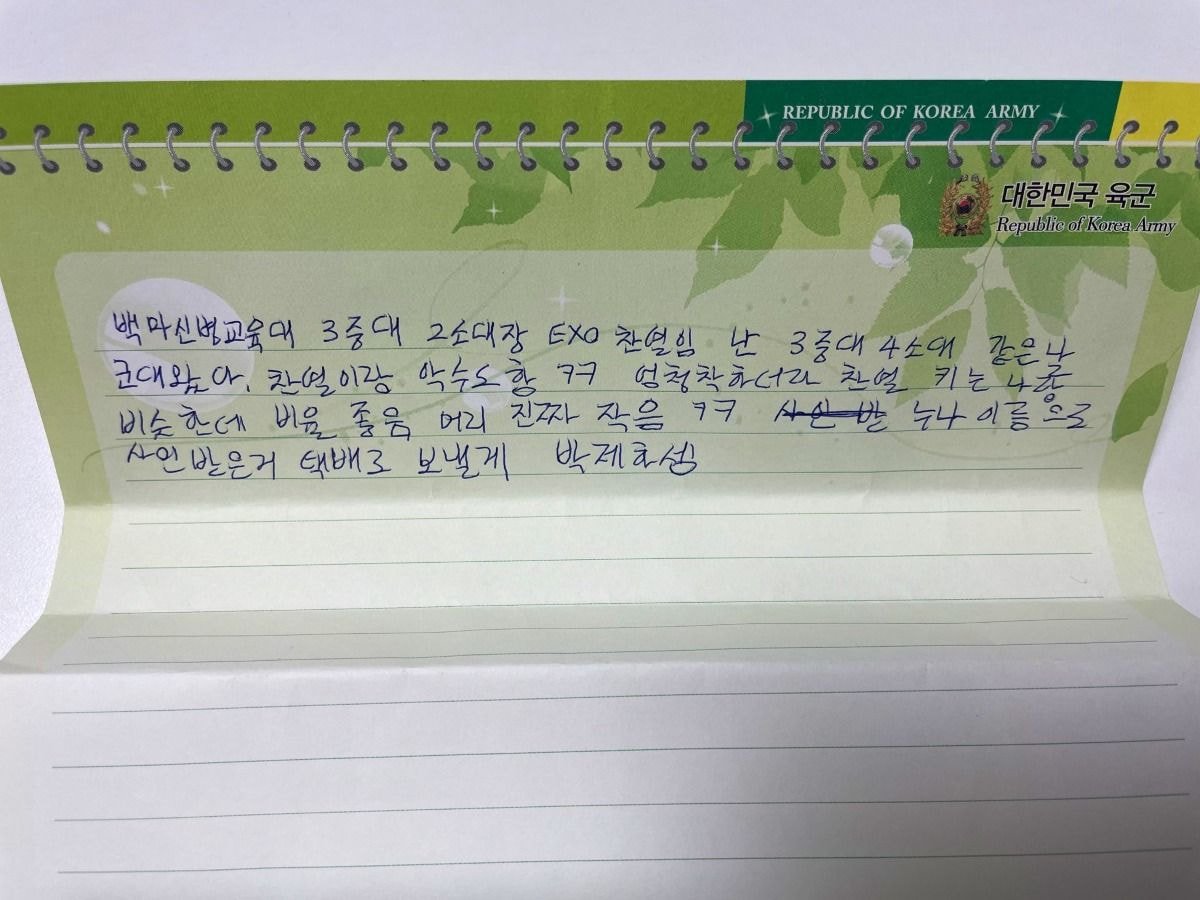 REPUBLIC OF KOREA ARMY
대한민국 육군
Republic of Korea Army
백마신병교육대 3중대 2소대장 EXO 찬열임 난 3중대 4소대 같은
군대왔다. 찬열이랑 악수도 함 ㅋㅋ 엄청착하더라 찬열 키는 나랑
비슷한데 비율 좋음 머리 진짜 작음 ㅋㅋ 사인 받 누나 이름으로
사인받은거 택배로 보낼게